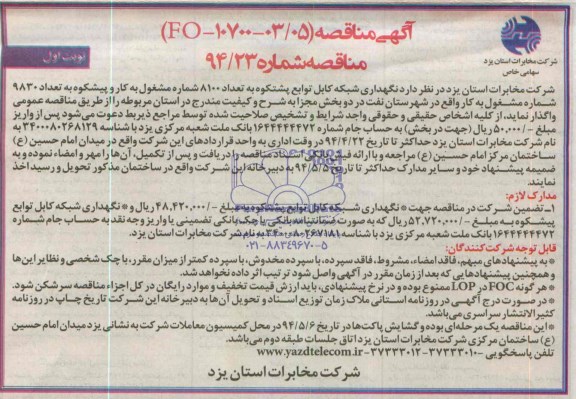 آگهی مناقصه (FO-۱۰۷۰۰-۰۳/۰۵)
مناقصه شماره ۹۴/۲۳
نوبت اول
شرکت مخابرات استان یزد
سهامی خاص
شرکت مخابرات استان یزد در نظر دارد نگهداری شبکه کابل توابع پشتکوه به تعداد ۸۱۰۰ شماره مشغول به کار و پیشکوه به تعداد ۹۸۳۰
شماره مشغول به کار واقع در شهرستان تفت در دو بخش مجزا به شرح و کیفیت مندرج در اسناد مربوطه را از طریق مناقصه عمومی
واگذار نماید، از کلیه اشخاص حقیقی و حقوقی واجد شرایط و تشخیص صلاحیت شده توسط مراجع ذیربط دعوت می‌شود پس از واریز
مبلغ ۵۰.۰۰۰/- ریال (جهت هر بخش) به حساب جام شماره ۱۶۴۴۴۴۴۴۷۲ بانک ملت شعبه مرکزی یزد با شناسه ۳۴۰۰۰۸۰۲۶۸۱۲۹ به
نام شرکت مخابرات استان یزد حداکثر تا تاریخ ۹۴/۴/۲۲ در وقت اداری به واحد قراردادهای این شرکت واقع در میدان امام حسین (ع)
ساختمان مرکز امام حسین (ع) مراجعه و با ارائه فیش بانکی اسناد مناقصه را دریافت و پس از تکمیل، آن‌ها را مهر و امضاء نموده و به
ضمیمه پیشنهاد خود و سایر مدارک حداکثر تا تاریخ ۹۴/۵/۵ به دبیرخانه این شرکت واقع در ساختمان مذکور تحویل و رسید اخذ
نمایند.
مدارک لازم:
۱ـ تضمین شرکت در مناقصه جهت * نگهداری شبکه کابل توابع پشتکوه به مبلغ ۴۸.۴۲۰.۰۰۰/- ریال و * نگهداری شبکه کابل توابع
پیشکوه به مبلغ ۵۲.۷۲۰.۰۰۰/- ریال که به صورت ضمانتنامه بانکی یا چک بانکی تضمینی یا واریز وجه نقد به حساب جام شماره
۱۶۴۴۴۴۴۴۷۲ بانک ملت شعبه مرکزی یزد با شناسه ۳۴۰۰۰۸۰۲۶۷۱۸۱ به نام شرکت مخابرات استان یزد.
۰۲۱-۸۸۳۴۹۶۷۰-۵
قابل توجه شرکت کنندگان:
* به پیشنهادهای مبهم، فاقد امضاء، مشروط، فاقد سپرده، با سپرده مخدوش، با سپرده کمتر از میزان مقرر، با چک شخصی و نظایر این‌ها
و همچنین پیشنهادهایی که بعد از زمان مقرر در آگهی واصل شود ترتیب اثر داده نخواهد شد.
* هرگونه FOC در LOP ممنوع بوده و در نرخ پیشنهادی، باید ارزش قیمت تخفیف و موارد رایگان در کل اجزاء مناقصه سرشکن شود.
* در صورت درج آگهی در روزنامه استانی ملاک زمان توزیع اسناد و تحویل آن‌ها به دبیرخانه این شرکت تاریخ چاپ در روزنامه
کثیرالانتشار سراسری می‌باشد.
* این مناقصه یک مرحله‌ای بوده و گشایش پاکت‌ها در تاریخ ۹۴/۵/۶ در محل کمیسیون معاملات شرکت به نشانی یزد میدان امام حسین
(ع) ساختمان مرکزی شرکت مخابرات استان یزد اتاق جلسات طبقه دوم می‌باشد.
تلفن پاسخگویی ۳۷۳۳۳۰۱۰-۳۷۳۳۳۰۱۲ www.yazdtelecom.ir
شرکت مخابرات استان یزد